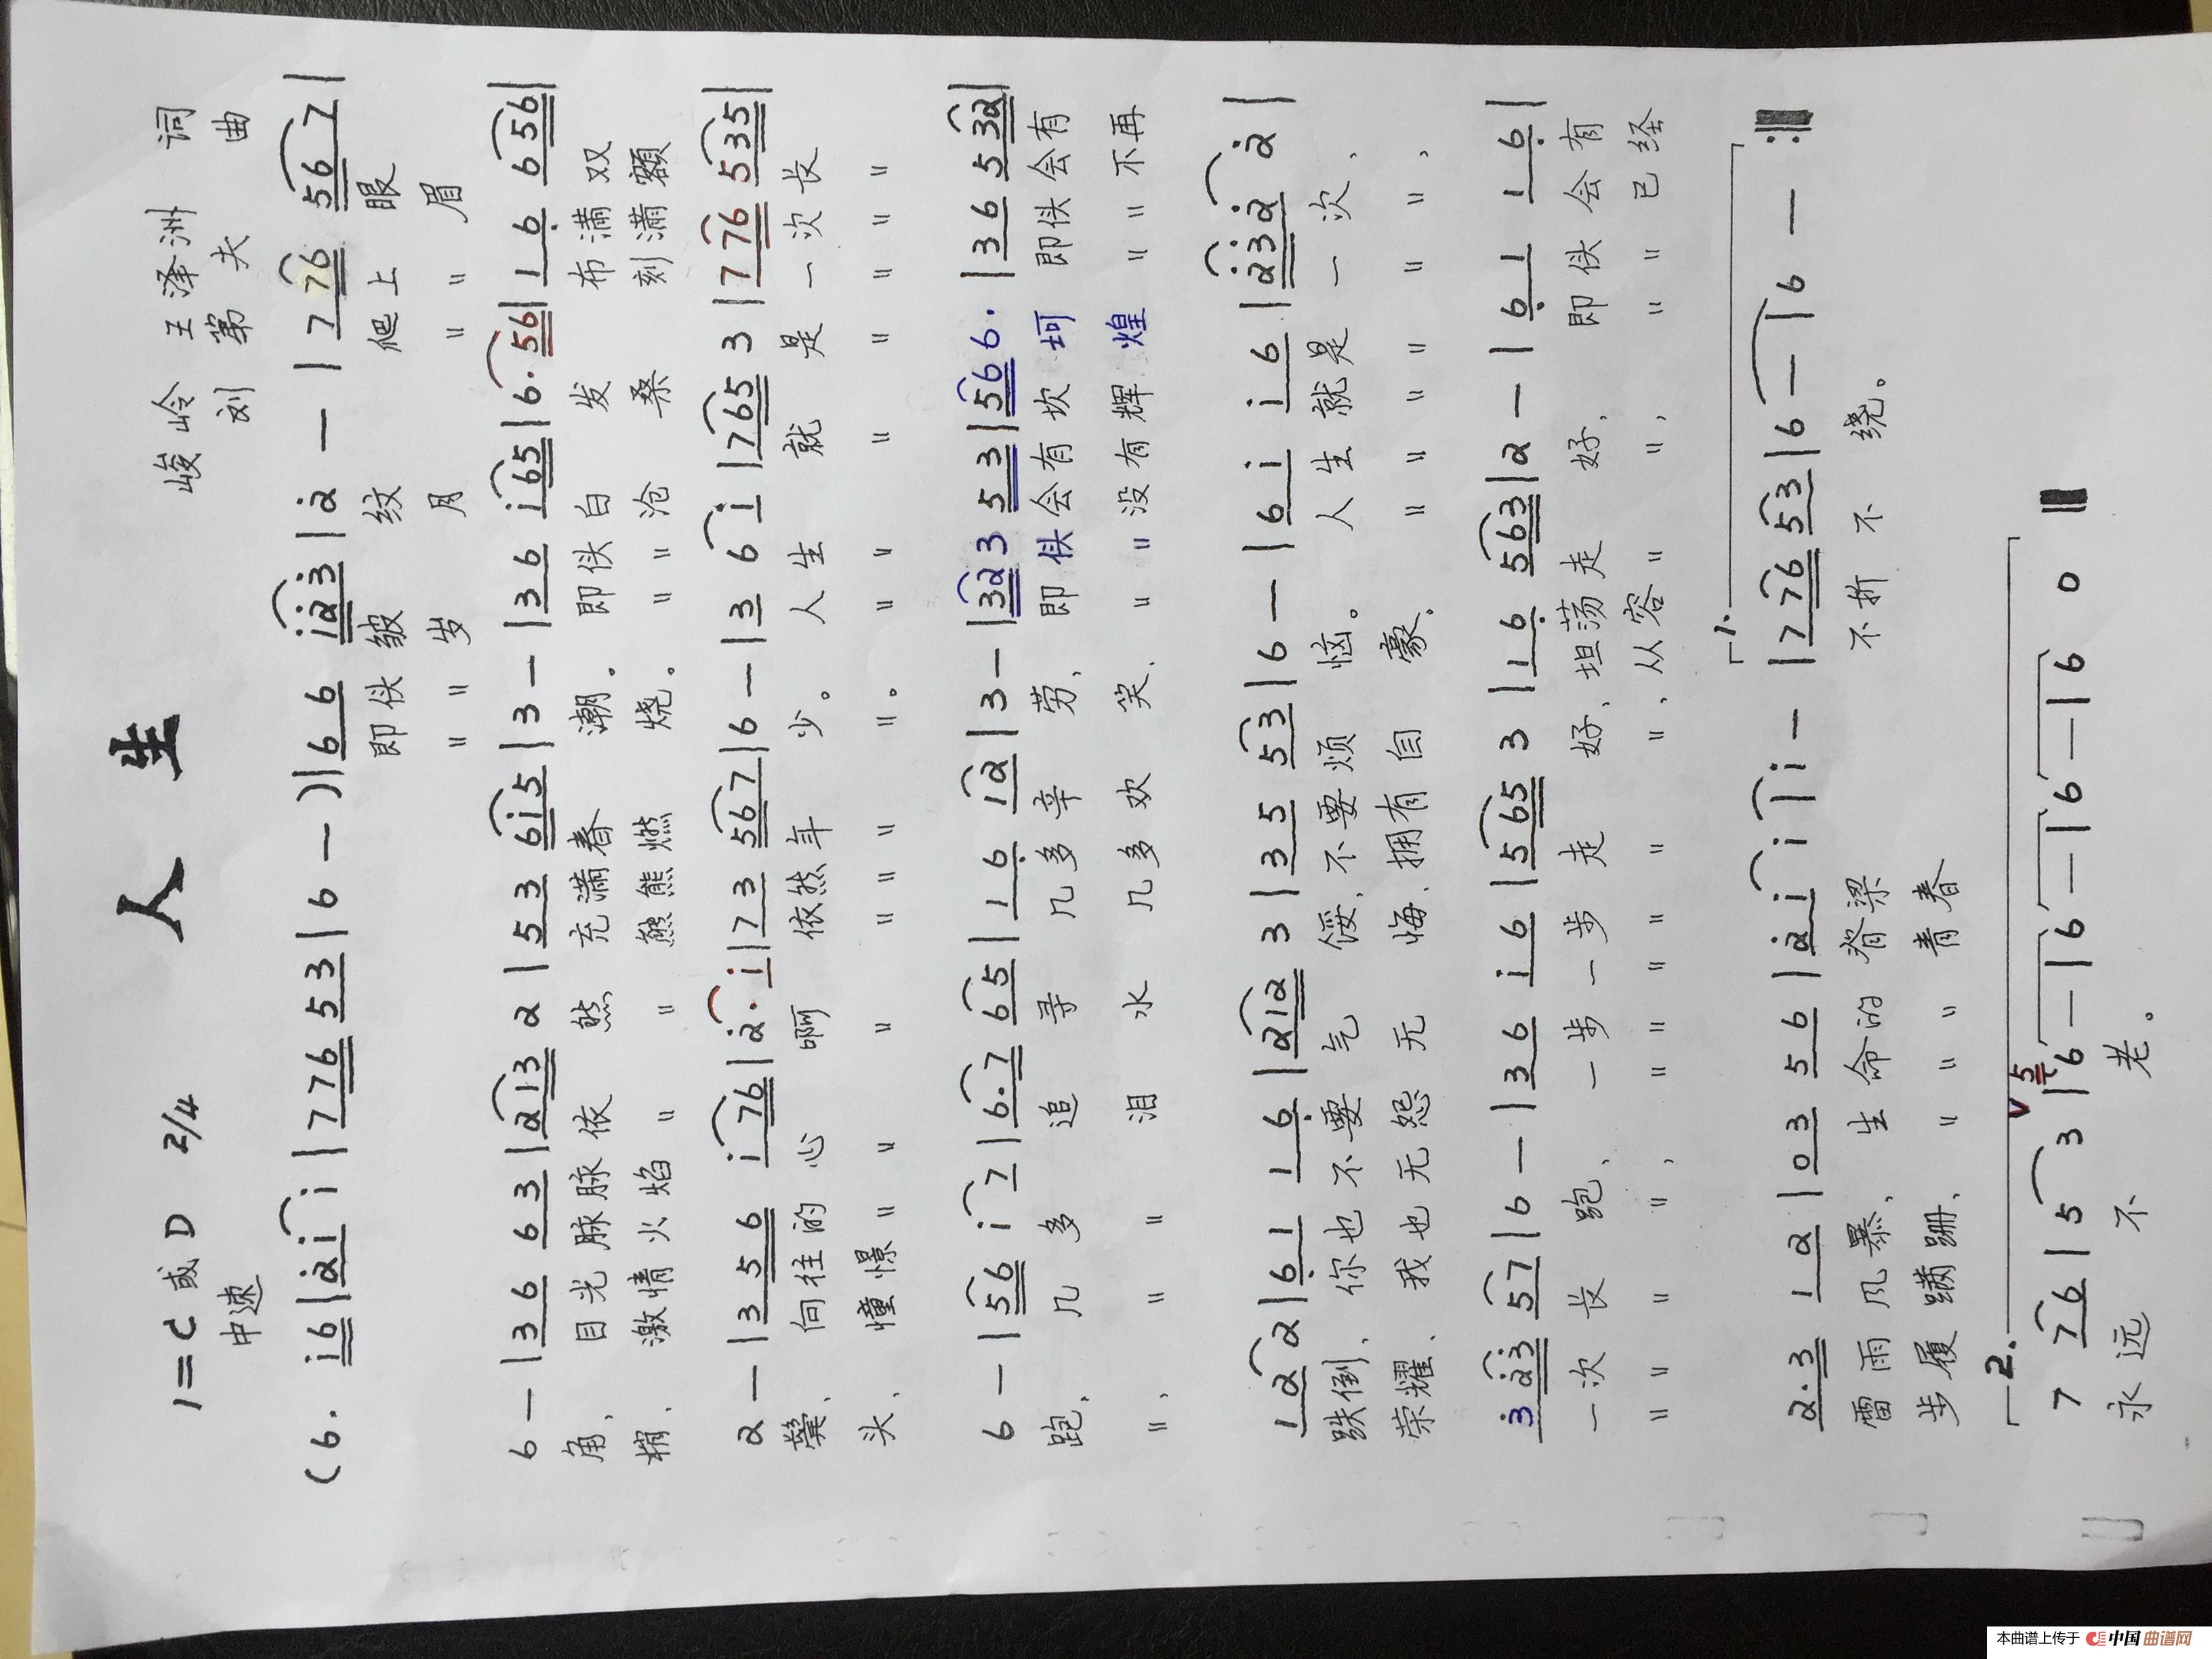 人 生
1=C 或 D 2/4
峻岭 王泽洲 词
中速
刘 第 夫 曲
(6. i6|2i i|7 76 53|6 —)|66 i23|2 —|7 76 567|
即佚 皱 纹 爬上 眼
〃〃 岁 月 〃〃 眉
6 —|36 63|213 2|53 6i5|3 —|36 i65|6. 56|16 656|
角、 目光脉脉依 然 充满春 潮。 即佚白 发 布满双
梢、 激情火焰〃 〃 熊熊燃 烧。 〃〃沧 桑 刻满额
2 —|3 56 i76|2. i|73 567|6 —|3 6 i|765 3|7 76 535|
鬓、 向往的 心 啊 依然年 少。 人生 就 是 一次长
头、 憧憬〃 〃 〃 〃〃〃 〃。 〃〃 〃 〃 〃〃〃
6 —|56 i 7|6. 7 65|16 12|3 —|323 53|566.|36 532|
跑、 几 多 追 寻 几多辛 劳, 即佚会有坎 坷 即佚会有
〃、 〃 〃 泪 水 几多欢 笑、 〃〃没有辉 煌 〃〃不再
12 2|61 16|212 3|35 53|6 —|6i i6|232 2|
跌倒、 你也不要 气 馁, 不要烦 恼。 人生就是 一 次、
荣耀、 我也无怨 无 悔、拥有自 豪、 〃〃〃〃 〃 〃,
3 23 57|6 —|36 i6|565 3|16 563|2 —|61 16|
一次 长 跑、 一步一步 走 好、坦荡走 好, 即佚会有
〃〃 〃 〃, 〃〃〃〃 〃 〃、从容〃 〃, 〃〃已经
2.3 12|03 56|2i i|i —|7 76 53|6 —|6 —:‖
雷雨风暴、 生命的 脊梁 不折 不 绕。
步履蹒跚、 〃〃〃 青春
1.
2.
7 76|5 3|6 —|6 —|6 —|6 0‖
永远 不 老。
本曲谱上传于 中国曲谱网